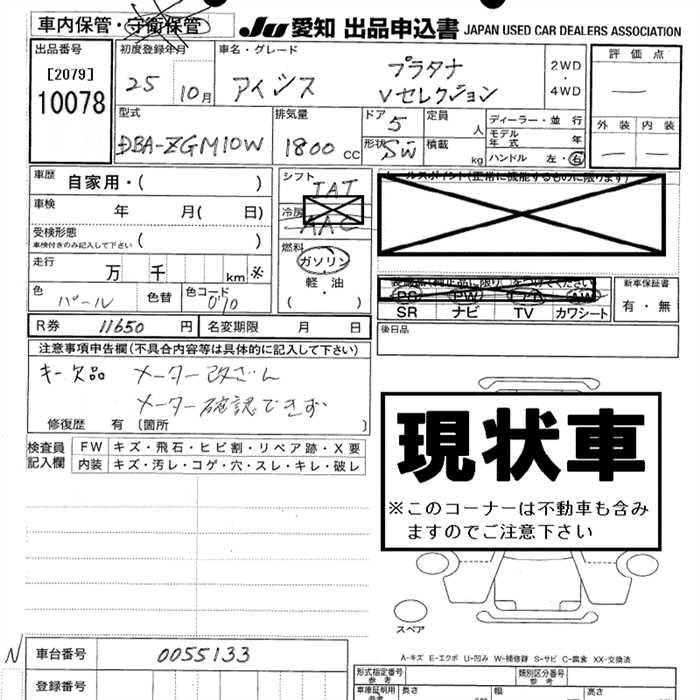 車内保管・守衛保管
JU 愛知 出品申込書 JAPAN USED CAR DEALERS ASSOCIATION
出品番号
[2079]
10078
初度登録年月
25 10月
車名・グレード
アイシス プラタナ
Vセレクション
2WD
・
4WD
評価点
—
外装 内装
— —
型式
DBA-ZGM10W
排気量
1800 cc
ドア 5
形状 SW
定員 人
積載 kg
ディーラー・並行
モデル年式 年
ハンドル 左・右
車歴 自家用・( )
車検 年 月( 日)
受検形態
車検付きのみ記入して下さい ( )
走行 万 千 km ※
色 パール 色替 色コード 070
R券 11650 円 名変期限 月 日
シフト IAT
冷房 AAC
燃料
ガソリン
軽・油
( ・ )
セールスポイント(正常に機能するものに限ります)
PS PW AW
SR ナビ TV カワシート
新車保証書
有・無
後日品
注意事項申告欄(不具合内容等は具体的に記入して下さい)
キー欠品 メーター改ざん
メーター確認できず
修復歴 有 〔箇所 〕
検査員記入欄
FW キズ・飛石・ヒビ割・リペア跡・X要
内装 キズ・汚レ・コゲ・穴・スレ・キレ・破レ
現状車
※このコーナーは不動車も含み
ますのでご注意下さい
スペア
A-キズ E-エクボ U-凹み W-補修跡 S-サビ C-腐食 XX-交換済
N 車台番号 0055133
登録番号
型式指定番号
参考
類別区分番号
参考
車庫証明用
参考
長さ 幅 高さ